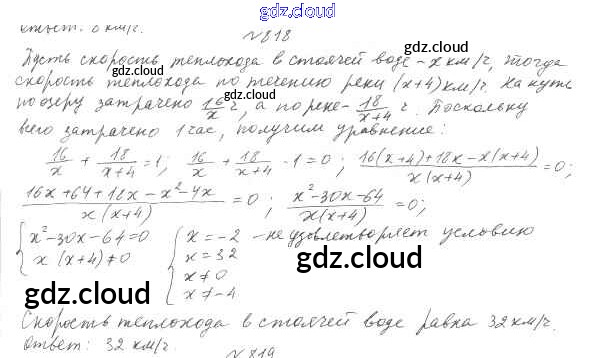 gdz.cloud
ответ: 8 км/ч.
№818
gdz.cloud
Пусть скорость теплохода в стоячей воде - x км/ч, тогда
скорость теплохода по течению реки (x+4) км/ч. На путь
по озеру затрачено 16/x ч, а по реке - 18/(x+4) ч. Поскольку
всего затрачено 1 час, получим уравнение:
16/x + 18/(x+4) = 1; 16/x + 18/(x+4) - 1 = 0; (16(x+4)+18x-x(x+4))/(x(x+4)) = 0;
(16x+64+18x-x²-4x)/(x(x+4)) = 0; (x²-30x-64)/(x(x+4)) = 0;
{ x²-30x-64=0
x(x+4)≠0
{ x = -2 - не удовлетворяет условию
x = 32
x ≠ 0
x ≠ -4
gdz.cloud
gdz.cloud
gdz.cloud
Скорость теплохода в стоячей воде равна 32 км/ч.
Ответ: 32 км/ч.
№819
gdz.cloud